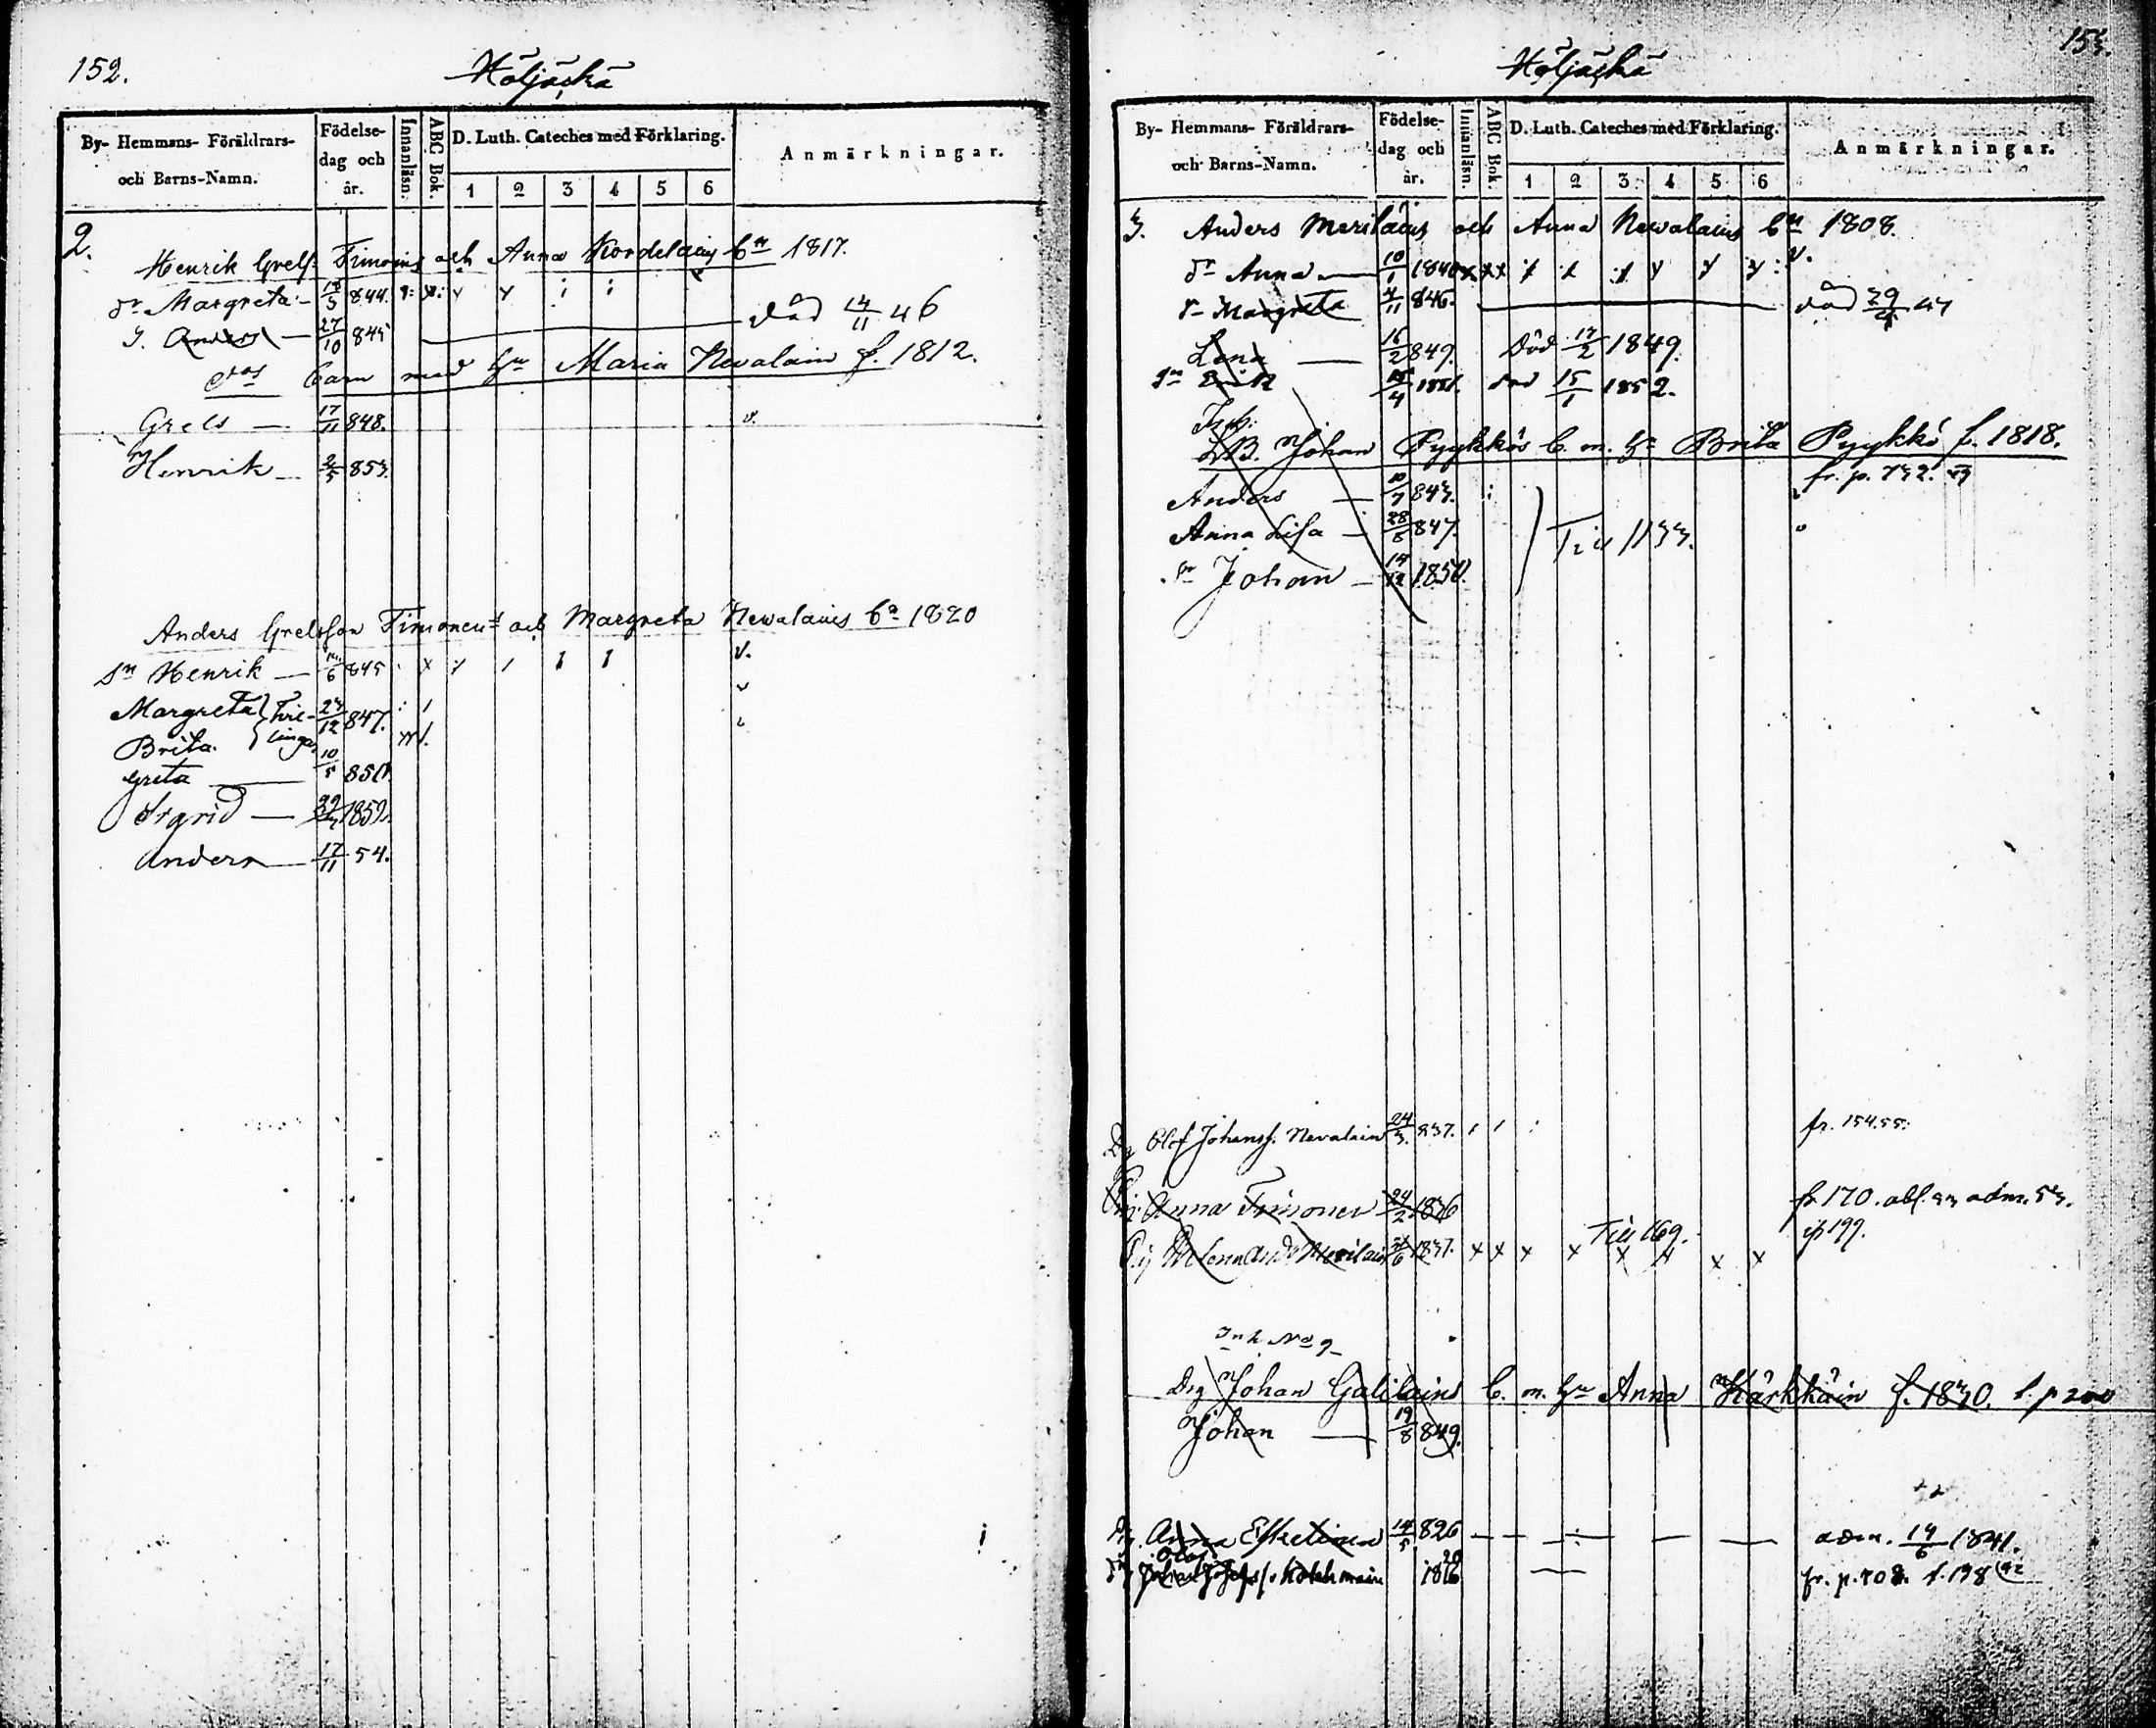 152.
Höljäckä
By- Hemmans- Föräldrars- och Barns-Namn.
Födelse- dag och år.
Innanläsn.
ABC Bok.
D. Luth. Cateches med Förklaring.
1 2 3 4 5 6
Anmärkningar.
2.
Henrik Grels: Timoins och Anna Kordelains bn 1817.
dr Margreta 844.
s. Anders 27/10 845 död 14/11 46
dos barn med hu Maria Nevalain f. 1812.
Grels 17/11 848.
Henrik 853.
Anders Grelsson Timonens och Margreta Newalains bn 1820
sn Henrik 845
Margreta } Tvil- 847.
Brita. } lingar
Greta 10/5 850.
Sigrid
Anders 17/11 54.
153.
Höljäckä
By- Hemmans- Föräldrars- och Barns-Namn.
Födelse- dag och år.
Innanläsn.
ABC Bok.
D. Luth. Cateches med Förklaring.
1 2 3 4 5 6
Anmärkningar.
3. Anders Meriläins och Anna Newalains bn 1808.
dr Anna 10/1 1840
dr Margreta 4/11 846. död 29/4 47
Lena 16/2 849. Död 17/2 1849.
sn Erik 1851. död 15/1 1852.
Inh.
Johan Pyykkös b. m. hu Brita Pyykkö f. 1818.
Anders 843.
Anna Lisa 847. Till 1133.
sn Johan 1850.
Dg Olof Johanss. Nevalain 837. fr. 154.55.
Pig. Anna Timonen 24/2 1836 fr 170. abl. adm. 53.
Till 169. ip 199.
Pig Helena Meriläin 1837.
Inh No 9
Drg Johan Galilains b. m. hu Anna Kärkkäin f. 1830. t. p 200
Johan 19/8 849.
Anna Eskelinen 14/5 826 adm. 14/6 1841.